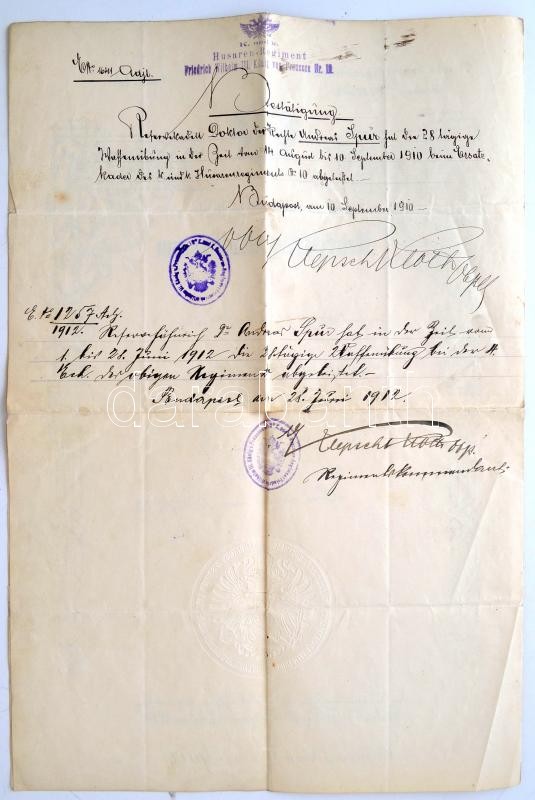 K. und k.
Husaren-Regiment
Friedrich Wilhelm III. König von Preussen Nr. 10.
Adjt.
Bestätigung
Reservekadett Doktor der Rechte Andreas Spur hat die 28 tägige
Waffenübung in der Zeit vom 14 August bis 10 September 1910 beim Ersatz-
kader des k. und k. Husarenregiments № 10 abgeleistet.-
Budapest, am 10 September 1910-
E. № 1257 Adj.
1912. Reservefähnrich Dr Andreas Spur hat in der Zeit vom
1. bis 28. Juni 1912 die 28tägige Waffenübung bei der 4.
Esk. des obigen Regiments abgeleistet.-
Budapest am 28. Juni 1912.
Regimentskommandant.
darabanth